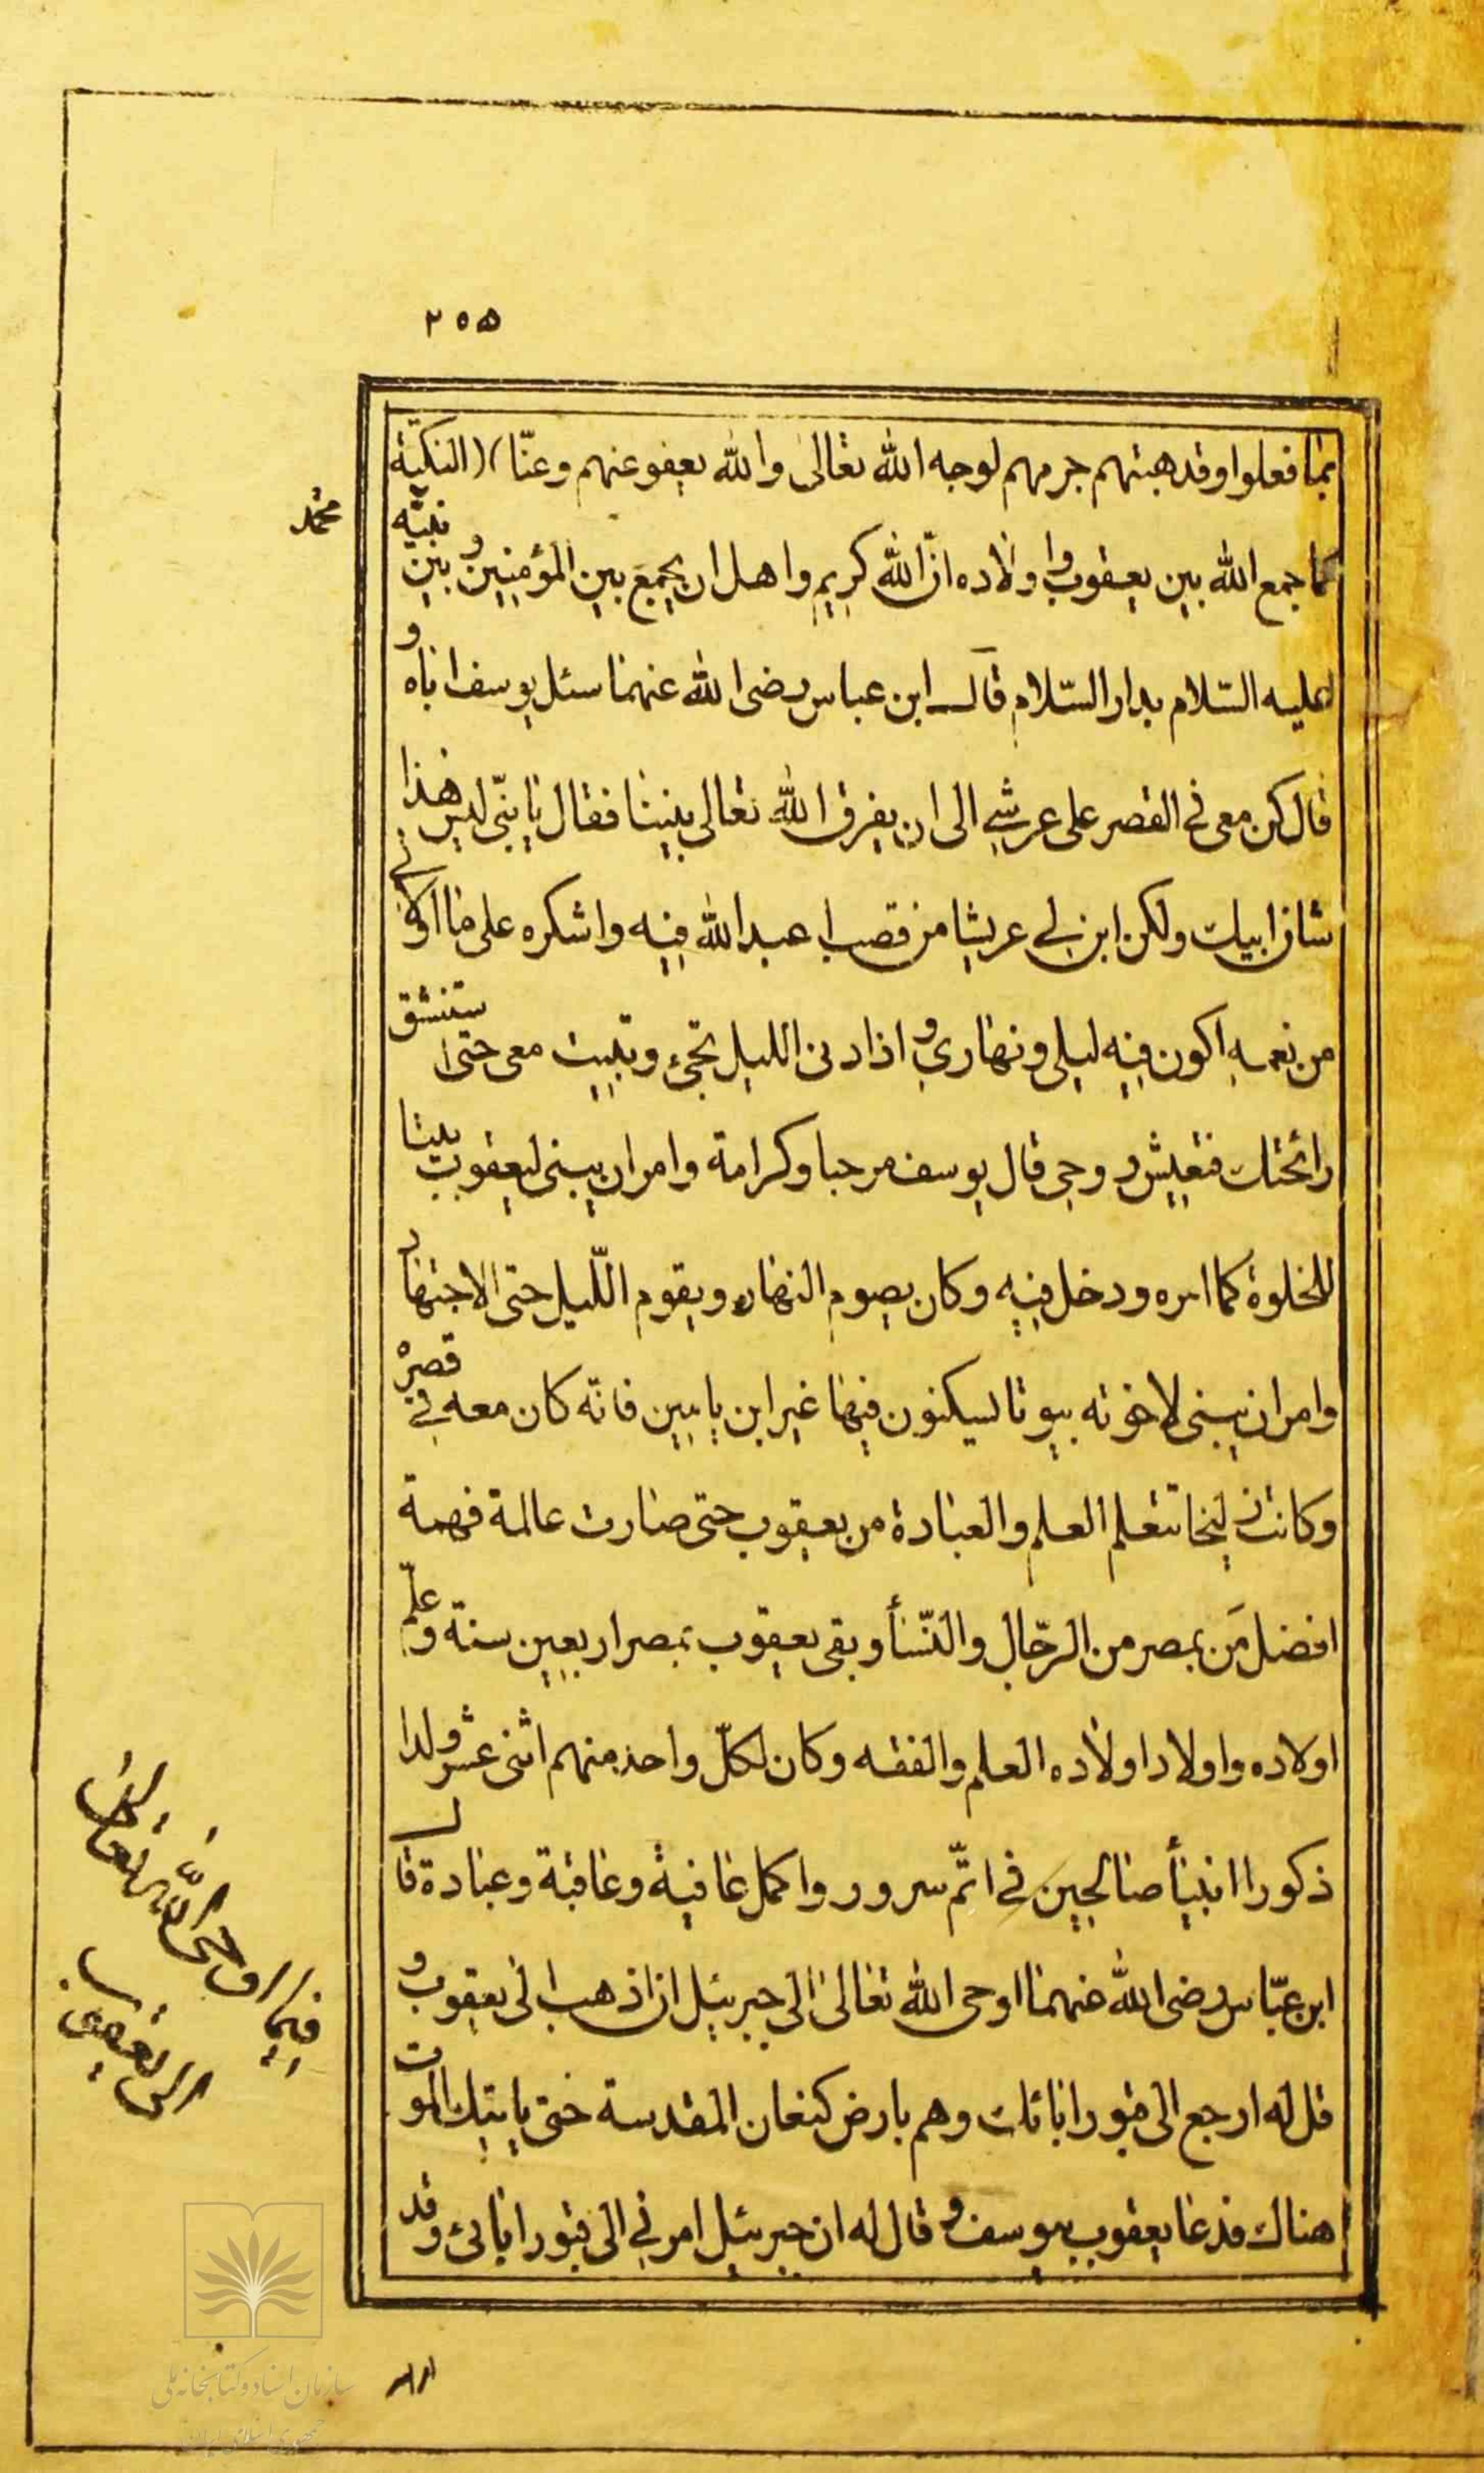 ٢٥٥
بما فعلوا وقد هبتهم جرمهم لوجه الله تعالى والله يعفو عنهم وعنّا) (النكتة
كما جمع الله بين يعقوب واولاده انّ الله كريم واهل ان يجمع بين المؤمنين وبين نبيّه
محمّد
عليه السّلام بدار السّلام قال ابن عباس رضى الله عنهما سئل يوسف اباه و
قال كن معى فى القصر على عرشى الى ان يفرق الله تعالى بيننا فقال يا بنّى ليس هذا
شان ابيك ولكن ابن لى عريشا من قصب اعبد الله فيه واشكره على ما اولانى
من نعمه اكون فيه ليلى ونهارى واذا دنى الليل تجئ وتبيت معى حتى ستنشق
رائحتك فتعيش روحى قال يوسف مرحبا وكرامة وامر ان يبنى ليعقوب بيتا
للخلوة كما امره ودخل فيه وكان يصوم النهار ويقوم اللّيل حتى الاجتهاد
وامر ان يبنى لاخوته بيوتا ليسكنون فيها غير ابن يامين فانه كان معه فى قصره
وكانت زليخا تتعلم العلم والعبادة من يعقوب حتى صارت عالمة فهمة
افضل مَن بمصر من الرّجال والنّسأ وبقى يعقوب بمصر اربعين سنة وعلّم
اولاده واولاد اولاده العلم والفقه وكان لكلّ واحد منهم اثنى عشر ولدا
ذكورا انبيأ صالحين فى اتمّ سرور واكمل عافية وعاقبة وعبادة قال
ابن عبّاس رضى الله عنهما اوحى الله تعالى الى جبرئيل ان اذهب الى يعقوب و
قل له ارجع الى قبور ابائك وهم بارض كنعان المقدسة حتى ياتيك الموت
هناك فدعا يعقوب بيوسف وقال له ان جبرئيل امرنى الى قبور ابائى وقد
فيما اوحى الله تعالى
الى يعقوب
سازمان اسناد و کتابخانه ملی
جمهوری اسلامی ایران